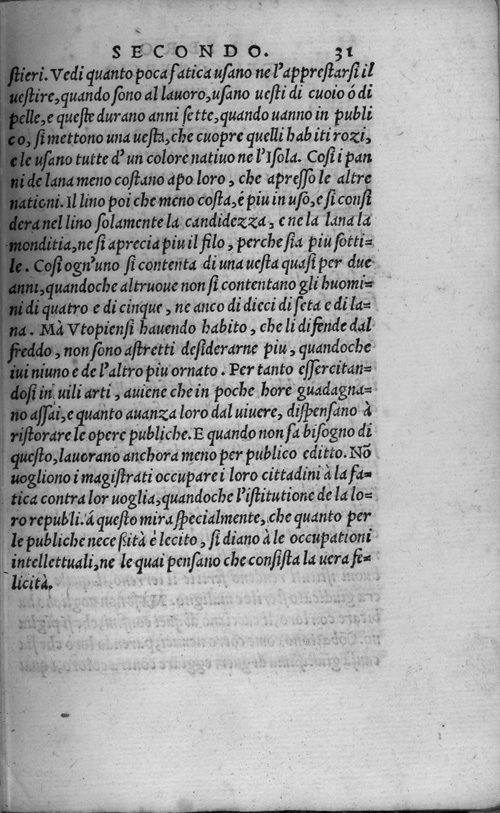 SECONDO. 31
ſtieri. Vedi quanto poca fatica uſano ne l'appreſtarſi il
ueſtire, quando ſono al lauoro, uſano ueſti di cuoio ó di
pelle, e queſte durano anni ſette, quando uanno in publi
co, ſi mettono una ueſta, che cuopre quelli habiti rozi,
e le uſano tutte d'un colore natiuo ne l'Iſola. Coſi i pan
ni de lana meno coſtano apo loro, che apreſſo le altre
nationi. Il lino poi che meno coſta, é piu in uſo, e ſi conſi
dera nel lino ſolamente la candidezza, e ne la lana la
monditia, ne ſi aprecia piu il filo, perche ſia piu ſotti=
le. Coſi ogn'uno ſi contenta di una ueſta quaſi per due
anni, quandoche altruoue non ſi contentano gli huomi=
ni di quatro e di cinque, ne anco di dieci di ſeta e di la=
na. Mà Vtopienſi hauendo habito, che li difende dal
freddo, non ſono aſtretti deſiderarne piu, quandoche
iui niuno e de l'altro piu ornato. Per tanto eſſercitan=
doſi in uili arti, auiene che in poche hore guadagna=
no aſſai, e quanto auanza loro dal uiuere, diſpenſano à
riſtorare le opere publiche. E quando non fa biſogno di
queſto, lauorano anchora meno per publico editto. Nõ
uogliono i magiſtrati occupare i loro cittadini à la fa=
tica contra lor uoglia, quandoche l'iſtitutione de la lo=
ro republi. á queſto mira ſpecialmente, che quanto per
le publiche neceßità é lecito, ſi diano à le occupationi
intellettuali, ne le quai penſano che conſiſta la uera fe=
licità.